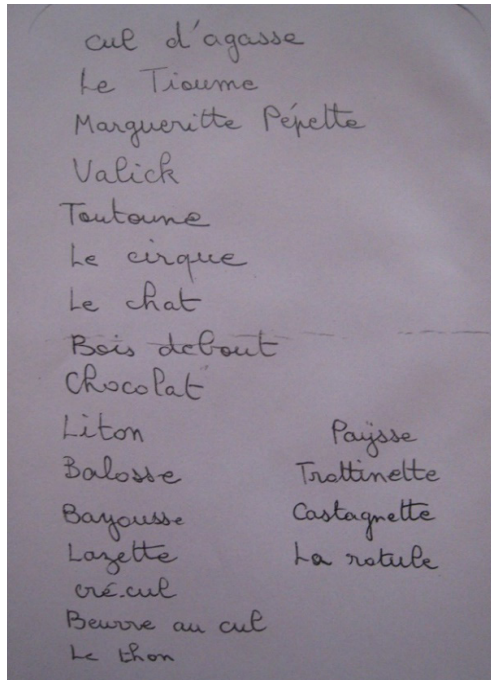 cul d'agasse
Le Tioume
Margueritte Pépette
Valick
Toutoune
Le cirque
Le chat
Bois debout
Chocolat
Liton
Balosse
Bayousse
Lazette
cré.cul
Beurre au cul
Le thon
Paÿsse
Trottinette
Castagnette
La rotule